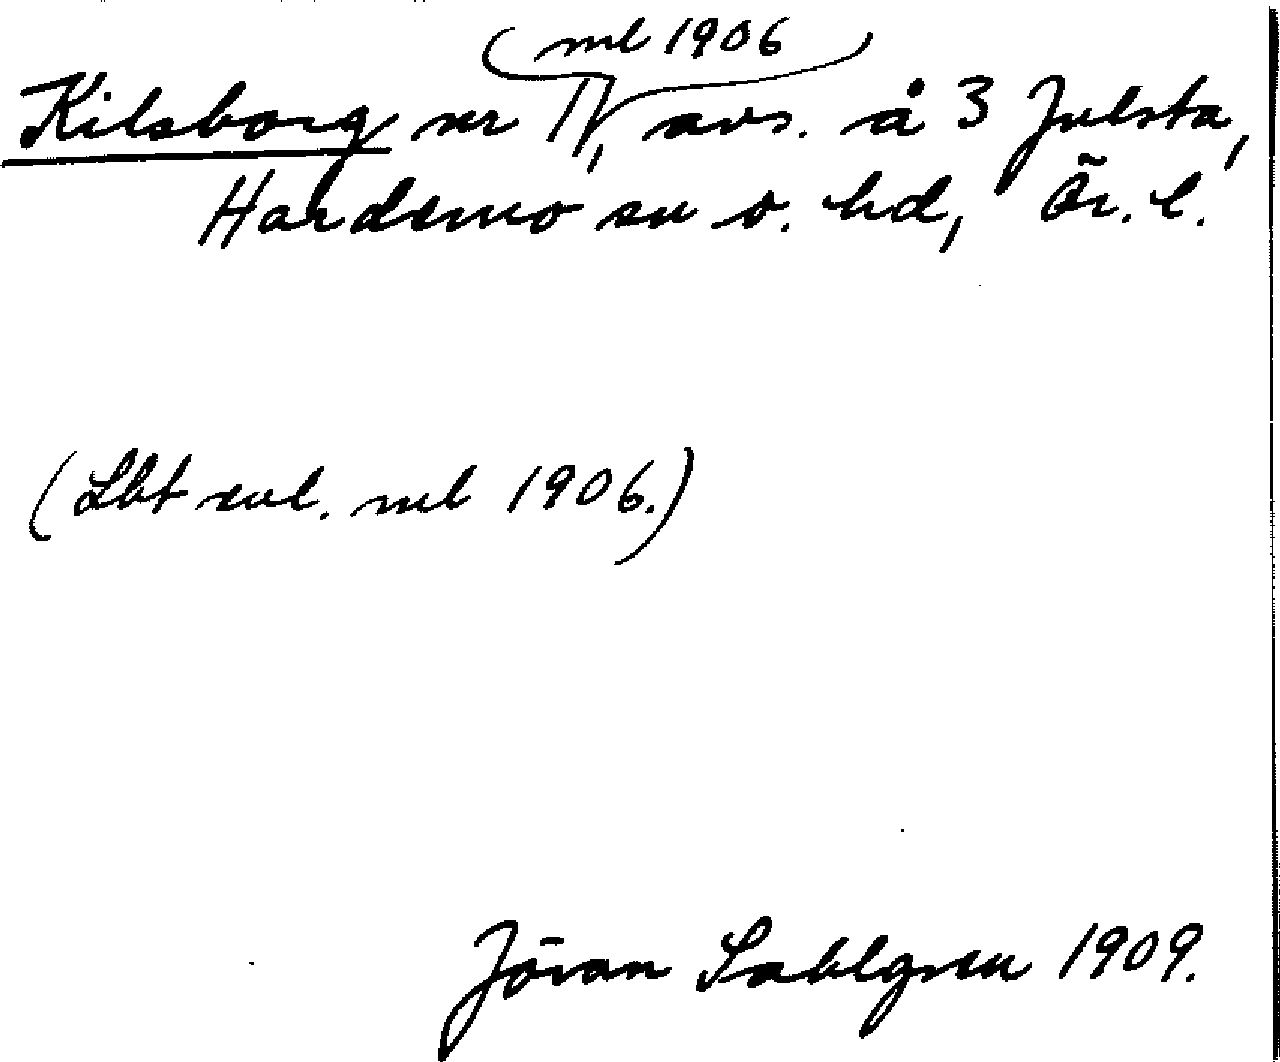 (ml 1906)
Kilsborg nr 11, avs. å 3 Julsta,
Hardemo sn o. hd, Ör. l.
(Lbt enl. ml 1906.)
Jöran Sahlgren 1909.